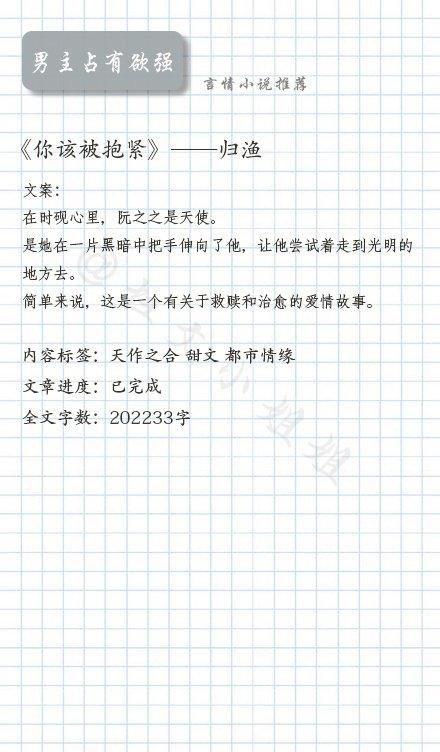 男主占有欲强
言情小说推荐
《你该被抱紧》——归渔
文案：
在时砚心里，阮之之是天使。
是她在一片黑暗中把手伸向了他，让他尝试着走到光明的
地方去。
简单来说，这是一个有关于救赎和治愈的爱情故事。
内容标签：天作之合 甜文 都市情缘
文章进度：已完成
全文字数：202233字